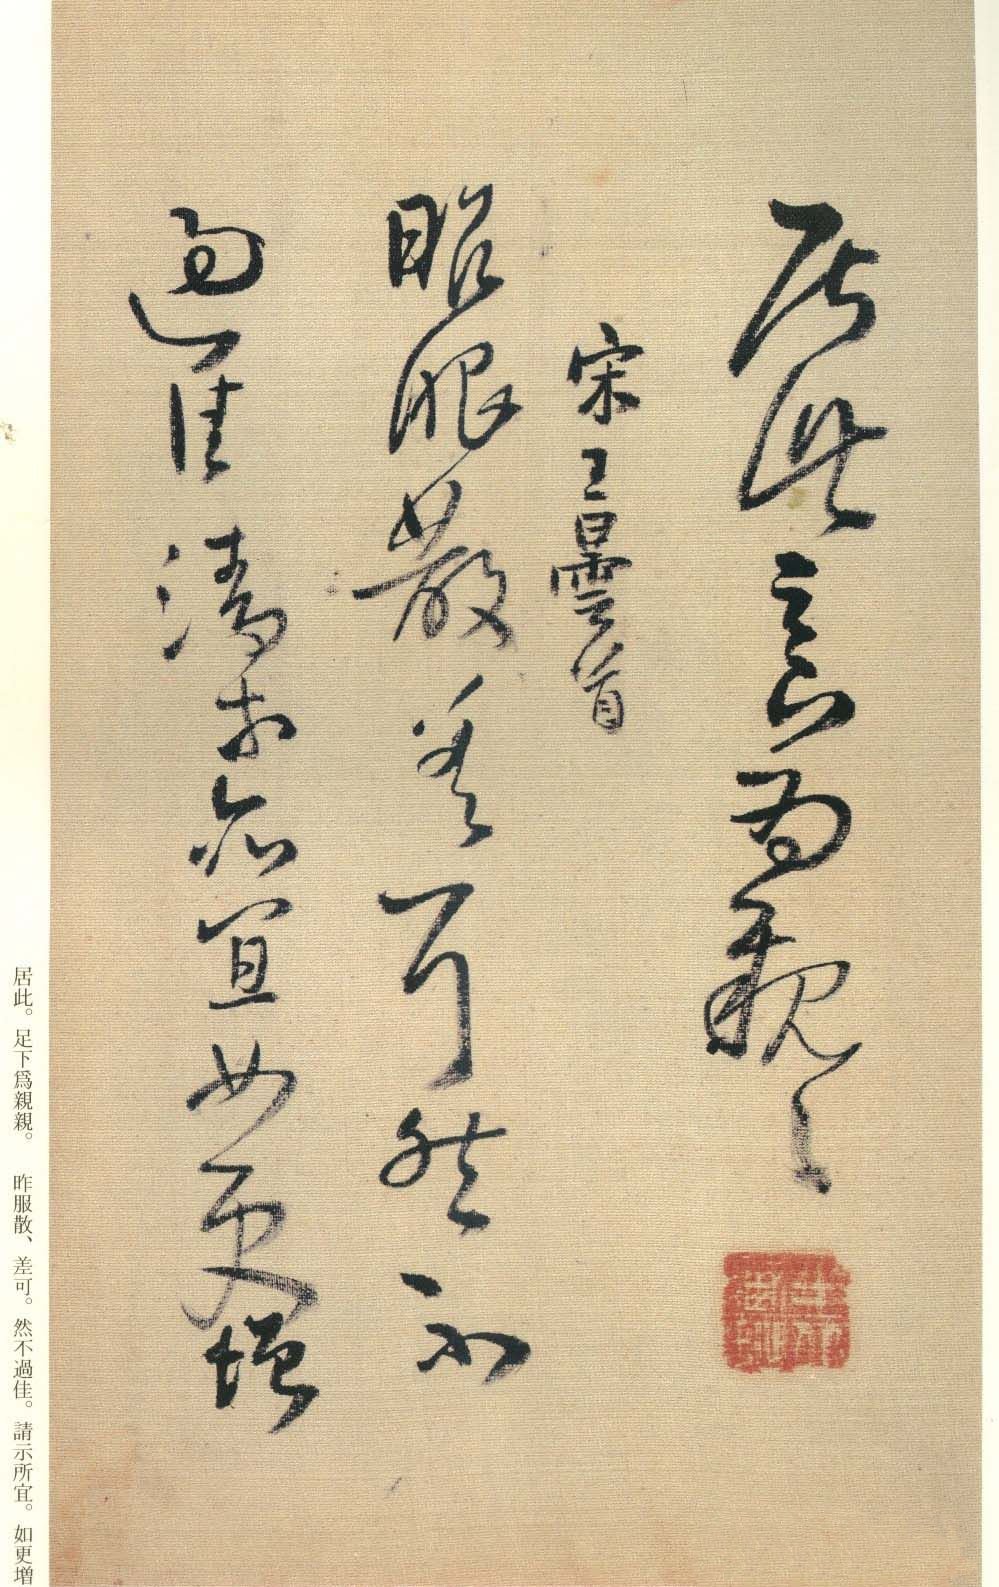 居此足下為親〻
宋王曇首
昨服散差可然不
過佳請示所宜如更增
居此。足下爲親親。　昨服散、差可。然不過佳。請示所宜。如更增